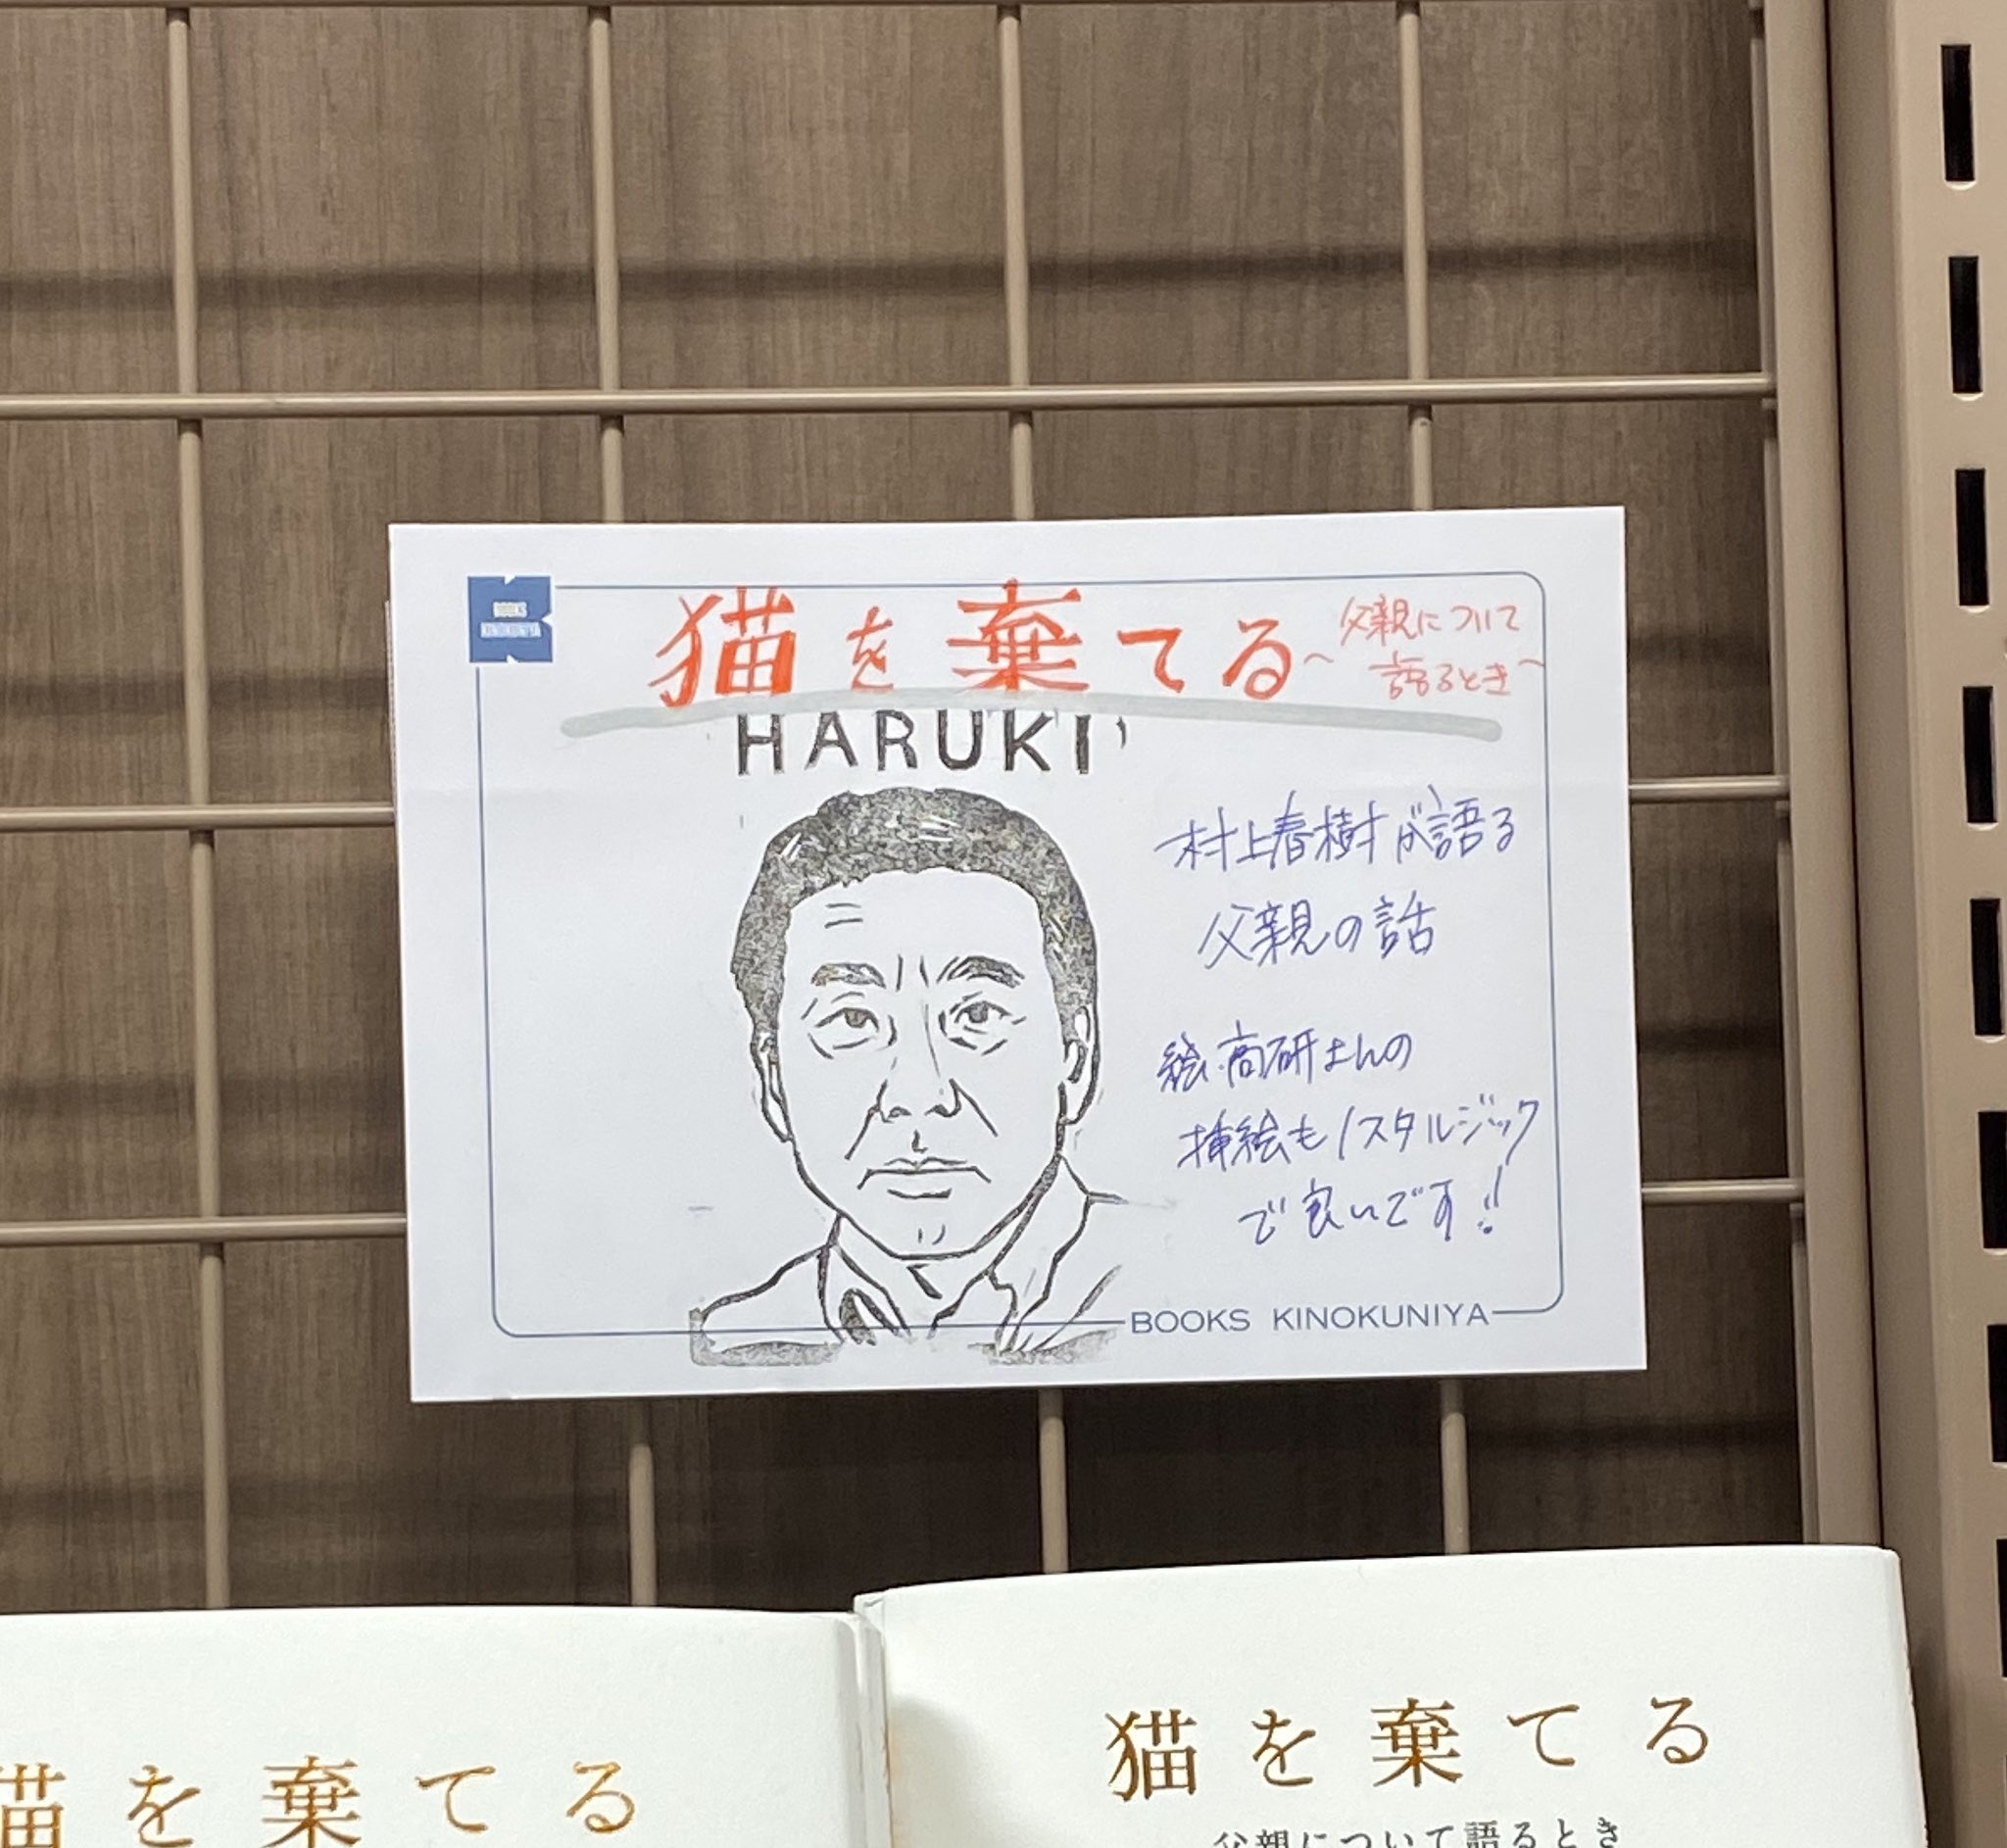 猫を棄てる
~父親について
語るとき~
HARUKI
村上春樹が語る
父親の話
絵・高研さんの
挿絵もノスタルジック
で良いです!!
BOOKS KINOKUNIYA
猫を棄てる
猫を棄てる
父親について語るとき